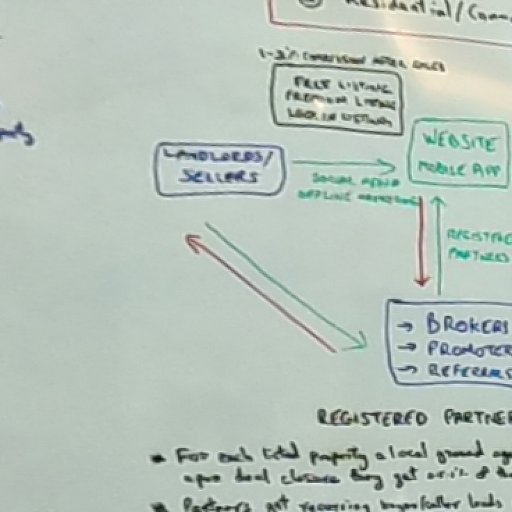 Residential/Comm
1-2% commission after sales
FREE LISTING
PREMIUM LISTING
LOCK IN LISTING
WEBSITE
MOBILE APP
LANDLORDS/
SELLERS
SOCIAL MEDIA
OFFLINE MARKETING
REGISTERE
PARTNERS
→ BROKERS
→ PROMOTER
→ REFERRALS
REGISTERED PARTNER
For each listed property a local ground ag
upon deal closure they get
Partners get recurring buyer/seller leads